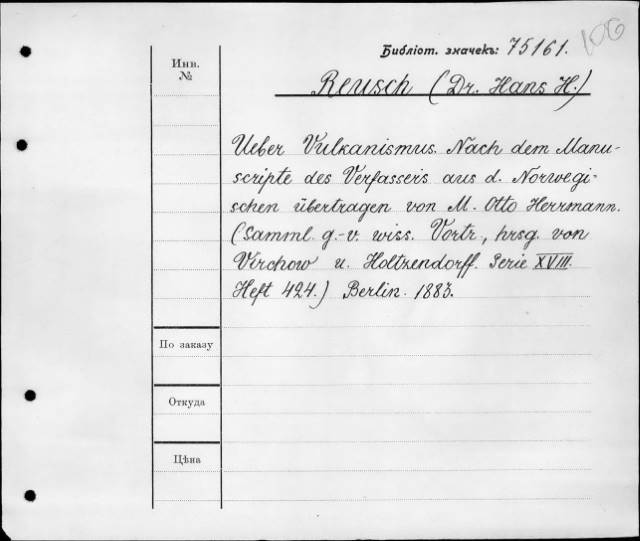 106
Библіот. значекъ: 75161.
Инв.
№
Reusch (Dr. Hans H.)
Ueber Vulkanismus. Nach dem Manu-
scripte des Verfassers aus d. Norwegi-
schen übertragen von M. Otto Herrmann.
(Samml. g.-v. wiss. Vortr., hrsg. von
Virchow u. Holtzendorff. Serie XVIII.
Heft 424.) Berlin. 1883.
По заказу
Откуда
Цѣна